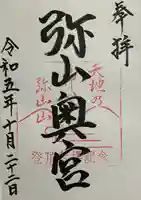 奉拝
天地乃
弥山奥宮
弥山山
令和五年十月二十二日